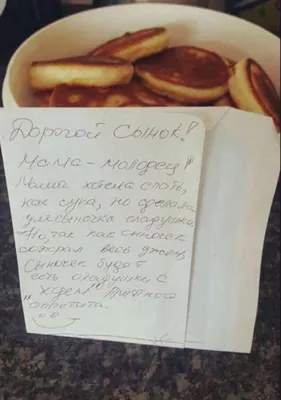 Дорогой сынок!
Мама - молодец!
Мама хотела спать,
как сука, но сделала
оладушки.
Но, так как сыночек
сожрал весь джем,
Сыночек будет
есть оладушки с
"хуем". Приятного
"аппетита.